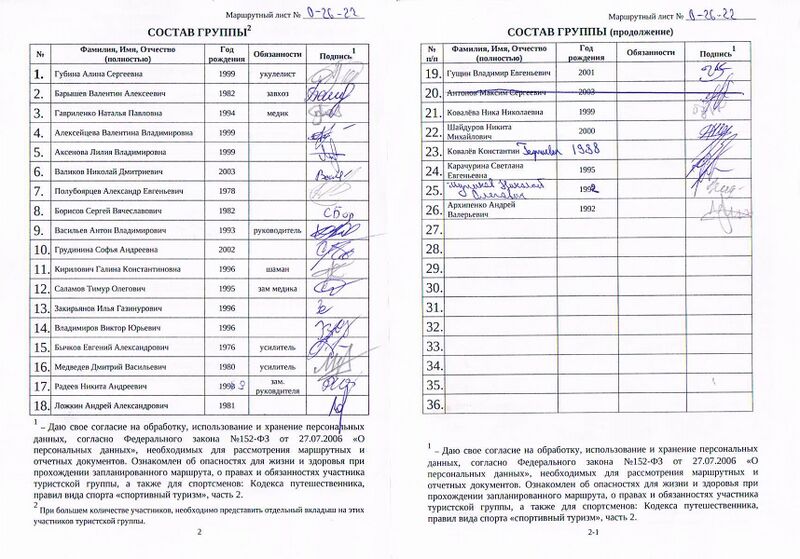 Маршрутный лист № О-26-22
СОСТАВ ГРУППЫ2
№ Фамилия, Имя, Отчество (полностью) Год рождения Обязанности Подпись1
1. Губина Алина Сергеевна 1999 укулелист
2. Барышев Валентин Алексеевич 1982 завхоз
3. Гавриленко Наталья Павловна 1994 медик
4. Алексейцева Валентина Владимировна 1999
5. Аксенова Лилия Владимировна 1999
6. Валиков Николай Дмитриевич 2003
7. Полубоярцев Александр Евгеньевич 1978
8. Борисов Сергей Вячеславович 1982 СБор
9. Васильев Антон Владимирович 1993 руководитель
10. Грудинина Софья Андреевна 2002
11. Кирилович Галина Константиновна 1996 шаман
12. Саламов Тимур Олегович 1995 зам медика
13. Закирьянов Илья Газинурович 1996
14. Владимиров Виктор Юрьевич 1996
15. Бычков Евгений Александрович 1976 усилитель
16. Медведев Дмитрий Васильевич 1980 усилитель
17. Радеев Никита Андреевич зам. руководителя
18. Ложкин Андрей Александрович 1981
1 – Даю свое согласие на обработку, использование и хранение персональных
данных, согласно Федерального закона №152-ФЗ от 27.07.2006 «О
персональных данных», необходимых для рассмотрения маршрутных и
отчетных документов. Ознакомлен об опасностях для жизни и здоровья при
прохождении запланированного маршрута, о правах и обязанностях участника
туристской группы, а также для спортсменов: Кодекса путешественника,
правил вида спорта «спортивный туризм», часть 2.
2 При большем количестве участников, необходимо представить отдельный вкладыш на этих
участников туристской группы.
2
Маршрутный лист № О-26-22
СОСТАВ ГРУППЫ (продолжение)
№ п/п Фамилия, Имя, Отчество (полностью) Год рождения Обязанности Подпись1
19. Гущин Владимир Евгеньевич 2001
20. Антонов Максим Сергеевич 2003
21. Ковалёва Ника Николаевна 1999
22. Шайдуров Никита
Михайлович 2000
23. Ковалёв Константин 1988
24. Карачурина Светлана
Евгеньевна 1995
25. Николай
Олегович 1992
26. Архипенко Андрей
Валерьевич 1992
27.
28.
29.
30.
31.
32.
33.
34.
35.
36.
1 – Даю свое согласие на обработку, использование и хранение персональных
данных, согласно Федерального закона №152-ФЗ от 27.07.2006 «О
персональных данных», необходимых для рассмотрения маршрутных и
отчетных документов. Ознакомлен об опасностях для жизни и здоровья при
прохождении запланированного маршрута, о правах и обязанностях участника
туристской группы, а также для спортсменов: Кодекса путешественника,
правил вида спорта «спортивный туризм», часть 2.
2-1